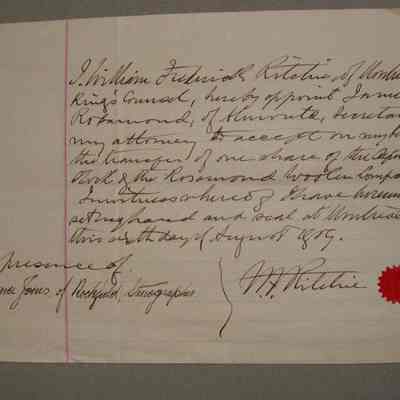 I, William Frederick Ritchie, of Montre
King's Counsel, hereby appoint James
Rosamond, of Almonte, Secreta
my attorney to accept on my
the transfer of one share of the
Stock of the Rosamond Woolen Compan
In witness whereof I have hereun
set my hand and seal at Montrea
this sixth day of August 1909.
presence of
Jones, of Rockfield, Stenographer
W. F. Ritchie